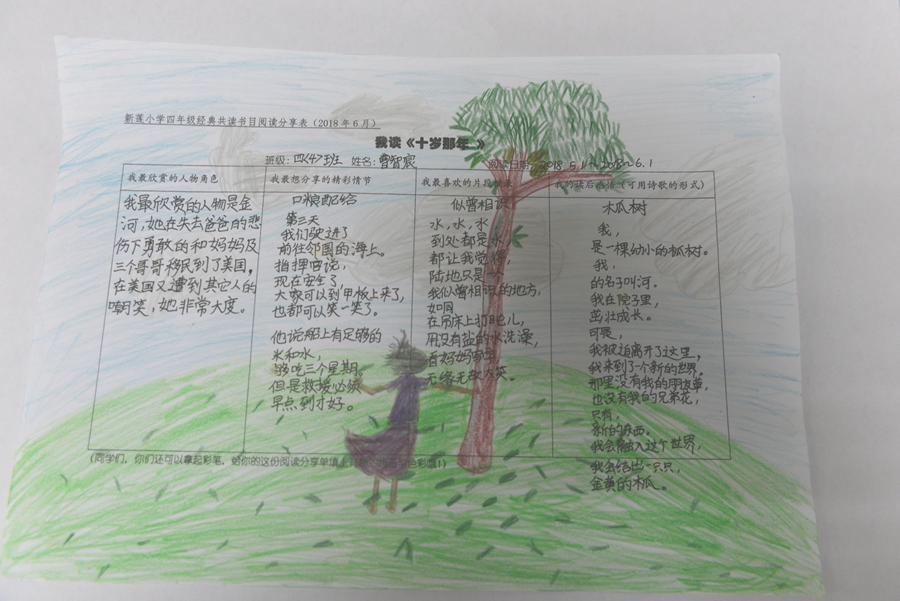 新莲小学四年级经典共读书目阅读分享表（2018年6月）
我读《十岁那年 》
班级：四(4)班 姓名：曹智宸 阅读日期：2018.5.1~2018.6.1
我最欣赏的人物角色
我最欣赏的人物是金
河，她在失去爸爸的悲
伤下勇敢的和妈妈及
三个哥哥移民到了美国，
在美国又遭到其它人的
嘲笑，她非常大度。
我最想分享的精彩情节
口粮配给
第三天
我们驶进了
前往邻国的海上。
指挥官说，
现在安全了，
大家可以到甲板上来了，
也都可以笑一笑了。
他说船上有足够的
米和水，
够吃三个星期，
但是救援必须
早点到才好。
我最喜欢的片段
似曾相识
水，水，水
到处都是水
都让我觉得，
陆地只是一个
我似曾相识的地方，
如同
在吊床上打盹儿，
用没有盐的水洗澡，
看妈妈
无缘无故大笑。
我的读后感悟（可用诗歌的形式）
木瓜树
我，
是一棵幼小的木瓜树。
我，
的名子叫河。
我在院子里，
茁壮成长。
可是，
我被迫离开了这里，
我来到了一个新的世界。
那里没有我的朋友草，
也没有我的兄弟花，
只有，
新的东西。
我会融入这个世界，
我会结出一只只，
金黄的木瓜。
（同学们，你们还可以拿起彩笔，给你的这份阅读分享单填上 色彩哦！）